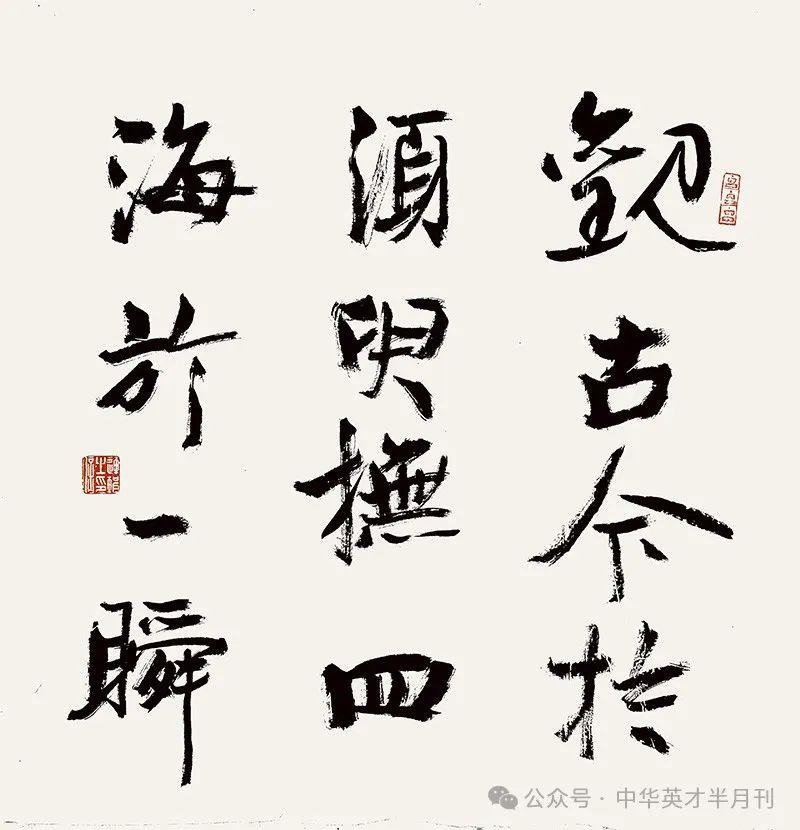 觀古今於
須臾撫四
海於一瞬
公众号·中华英才半月刊